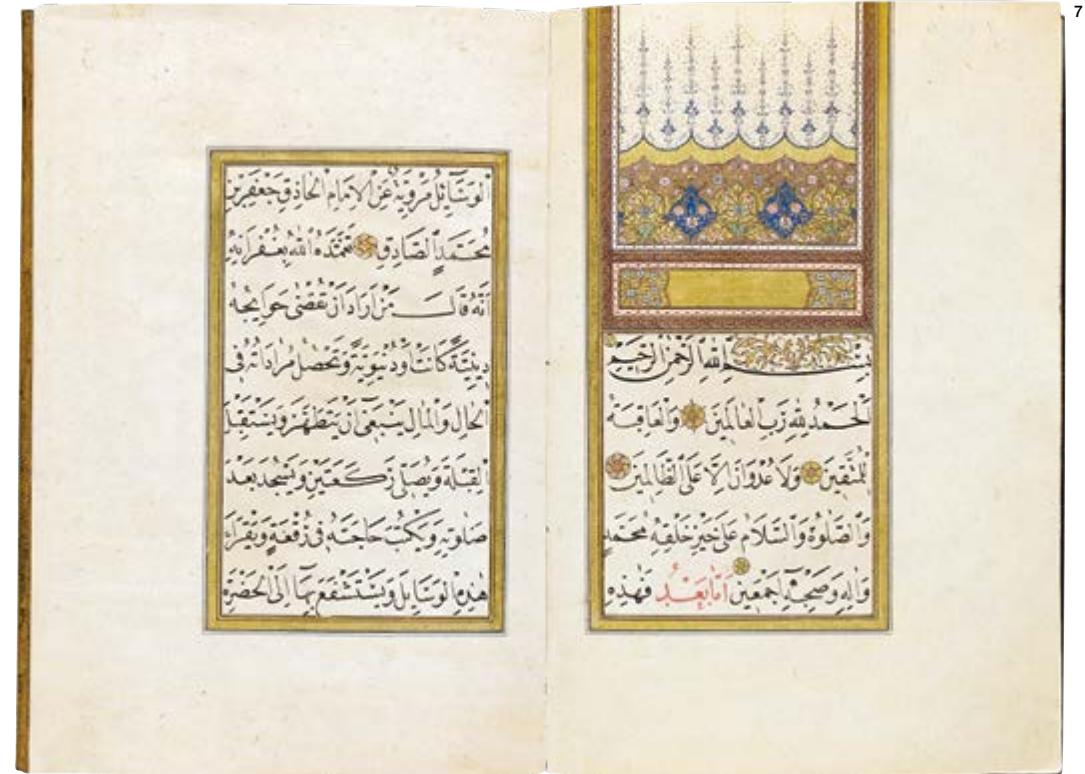 7
بِسْمِ اللهِ الرَّحْمٰنِ الرَّحِيْمِ
اَلْحَمْدُ لِلّٰهِ رَبِّ الْعَالَمِيْنَ وَالْعَاقِبَةُ
لِلْمُتَّقِيْنَ وَلَا عُدْوَانَ اِلَّا عَلَى الظَّالِمِيْنَ
وَالصَّلٰوةُ وَالسَّلَامُ عَلٰى خَيْرِ خَلْقِهِ مُحَمَّدٍ
وَاٰلِهِ وَصَحْبِهِ اَجْمَعِيْنَ اَمَّا بَعْدُ فَهٰذِهِ
الْوَسَآئِلُ مَرْوِيَّةٌ عَنِ الْاِمَامِ الْحَاذِقِ جَعْفَرِ بْنِ
مُحَمَّدٍ الصَّادِقِ تَغَمَّدَهُ اللهُ بِغُفْرَانِهِ
اَنَّهُ قَالَ مَنْ اَرَادَ اَنْ تُقْضٰى حَوَايِجُهُ
دِيْنِيَّةً كَانَتْ اَوْ دُنْيَوِيَّةً وَتَحْصُلَ مُرَادَاتُهُ فِى
الْحَالِ وَالْمَالِ يَنْبَغِى اَنْ يَتَطَهَّرَ وَيَسْتَقْبِلَ
الْقِبْلَةَ وَيُصَلِّى رَكْعَتَيْنِ وَيَسْجُدَ بَعْدَ
صَلٰوتِهِ وَيَكْتُبَ حَاجَتَهُ فِى رُقْعَةٍ وَيَقْرَاَ
هٰذِهِ الْوَسَايِلَ وَيَسْتَشْفِعَ بِهَا اِلَى الْحَضْرَةِ